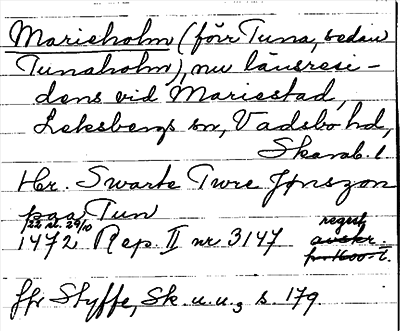 Marieholm (förr Tuna, sedan
Tunaholm), nu länsresi-
dens vid Mariestad,
Leksbergs sn, Vadsbo hd,
Skarab. l.
Hr. Swarte Twre Jønszon
paa Tun
22 sl. 29/10
1472 Rep. II nr 3147
avskr.
fr. 1600-t.
jfr Styffe, Sk. u. u. 3 s. 179